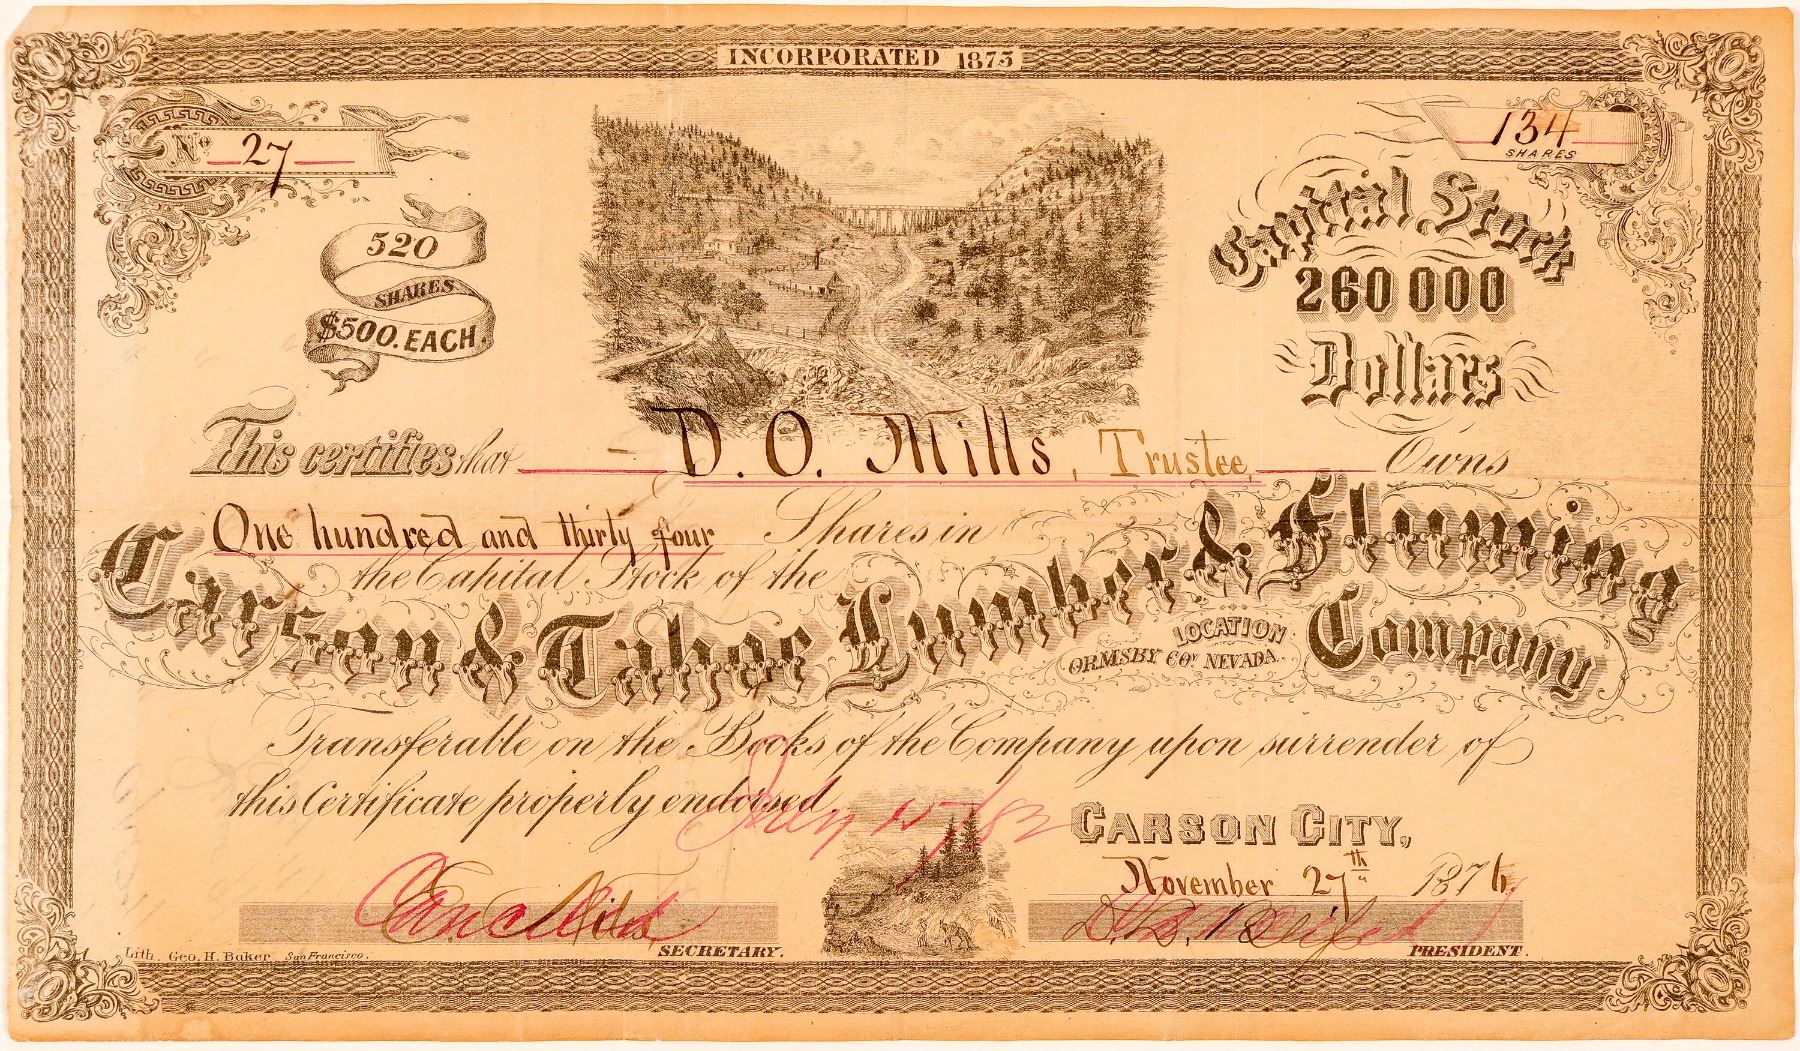 INCORPORATED 1875
No 27
134
SHARES
520
SHARES
$500. EACH.
Capital Stock
260 000
Dollars
This certifies that D. O. Mills, Trustee, Owns
One hundred and thirty four Shares in
the Capital Stock of the
Carson & Tahoe Lumber & Fluming
Company
LOCATION
ORMSBY COY NEVADA.
Transferable on the Books of the Company upon surrender of
this Certificate properly endorsed
July 15/82
CARSON CITY,
November 27th 1876
Cancelled
SECRETARY.
PRESIDENT.
Lith. Geo. H. Baker San Francisco.